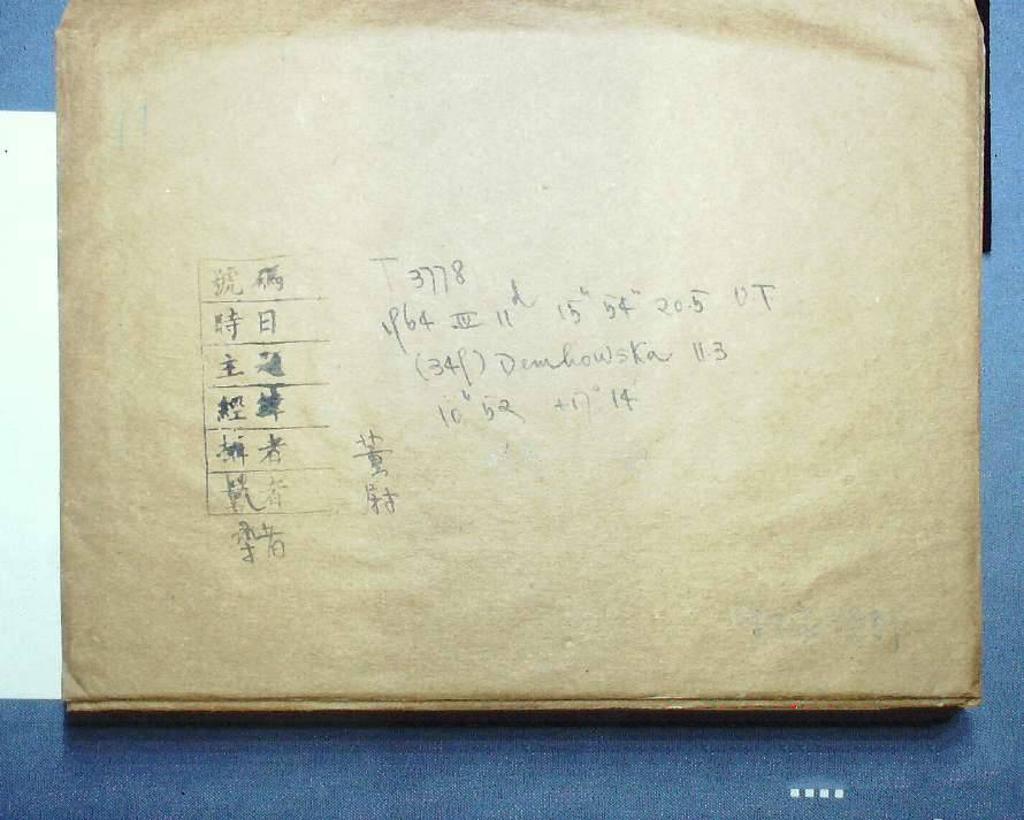 號碼 T 3778
時日 1964 III 11d 15h 54m 20.5 UT
主題 (349) Dembowska 11.3
經緯 10h 52 +17° 14
攝者 董
者 尉
者